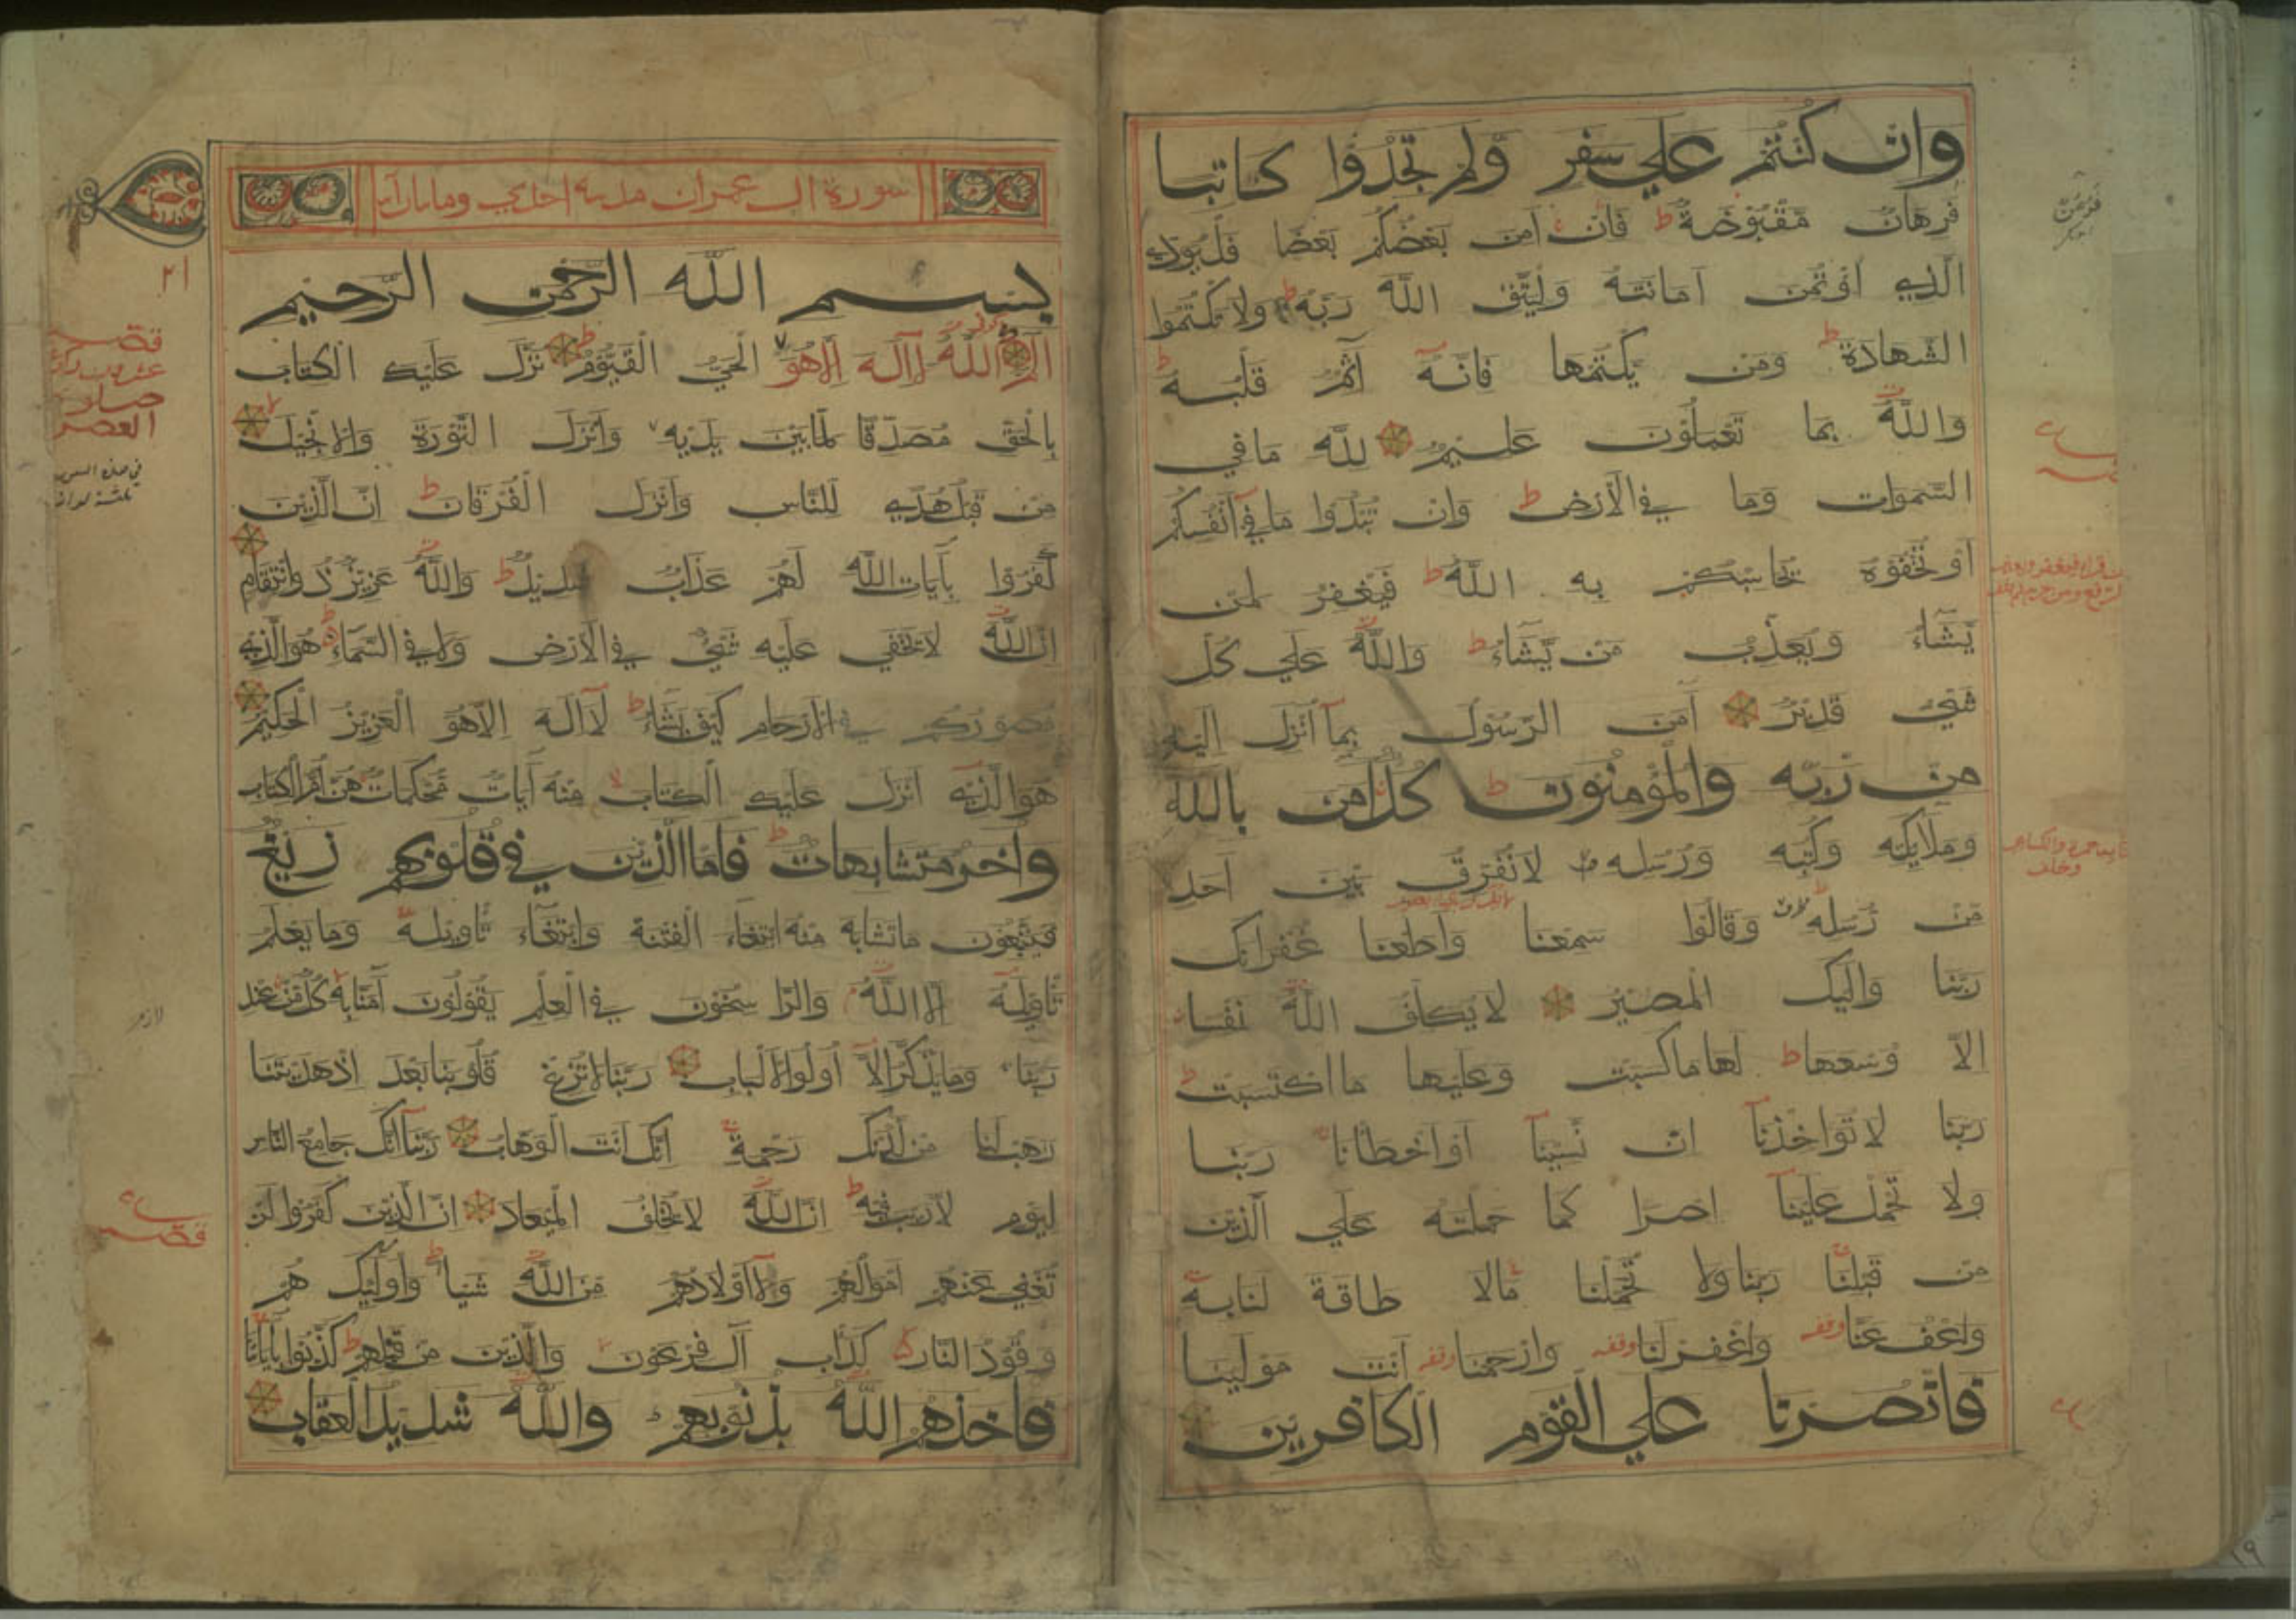 وان كنتم علي سفر ولم تجدوا كاتبا
فرهان مقبوضة ط فان امن بعضكم بعضا فليود
الذي اؤتمن امانته وليتق الله ربه ط ولا تكتموا
الشهادة ط ومن يكتمها فانه آثم قلبه ط
والله بما تعملون عليم لله ما في
السموات وما في الارض ط وان تبدوا ما في انفسكم
او تخفوه يحاسبكم به الله ط فيغفر لمن
يشاء ويعذب من يشاء ط والله علي كل
شيء قدير آمن الرسول بما انزل اليه
من ربه والمؤمنون ط كل امن بالله
وملايكته وكتبه ورسله لا نفرق بين احد
من رسله وقالوا سمعنا واطعنا غفرانك
ربنا واليك المصير لا يكلف الله نفسا
الا وسعها ط لها ما كسبت وعليها ما اكتسبت ط
ربنا لا تواخذنا ان نسينا او اخطانا ربنا
ولا تحمل علينا اصرا كما حملته علي الذين
من قبلنا ربنا ولا تحملنا مالا طاقة لنا به
واعف عنا وقفه واغفر لنا وقفه وارحمنا وقفه انت مولينا
فانصرنا علي القوم الكافرين
سورة ال عمران
بسم الله الرحمن الرحيم
الم الله لا اله الا هو الحي القيوم ط نزل عليك الكتاب
بالحق مصدقا لما بين يديه وانزل التورة والانجيل
من قبل هدي للناس وانزل الفرقان ط ان الذين
كفروا بآيات الله لهم عذاب شديد ط والله عزيز ذو انتقام
ان الله لا يخفي عليه شيء في الارض ولا في السماء ط هو الذي
يصوركم في الارحام كيف يشاء ط لا اله الا هو العزيز الحكيم
هو الذي انزل عليك الكتاب منه آيات محكمات هن ام الكتاب
واخر متشابهات ط فاما الذين في قلوبهم زيغ
فيتبعون ما تشابه منه ابتغاء الفتنة وابتغاء تاويله وما يعلم
تاويله الا الله والراسخون في العلم يقولون آمنا به كل من عند
ربنا وما يذكر الا اولوا الالباب ربنا لا تزغ قلوبنا بعد اذ هديتنا
وهب لنا من لدنك رحمة انك انت الوهاب ربنا انك جامع الناس
ليوم لا ريب فيه ط ان الله لا يخلف الميعاد ان الذين كفروا لن
تغني عنهم اموالهم ولا اولادهم من الله شيا ط واولئك هم
وقود النار كداب آل فرعون والذين من قبلهم ط كذبوا بآياتنا
فاخذهم الله بذنوبهم والله شديد العقاب
صلوة
العصر
لازم
قصه